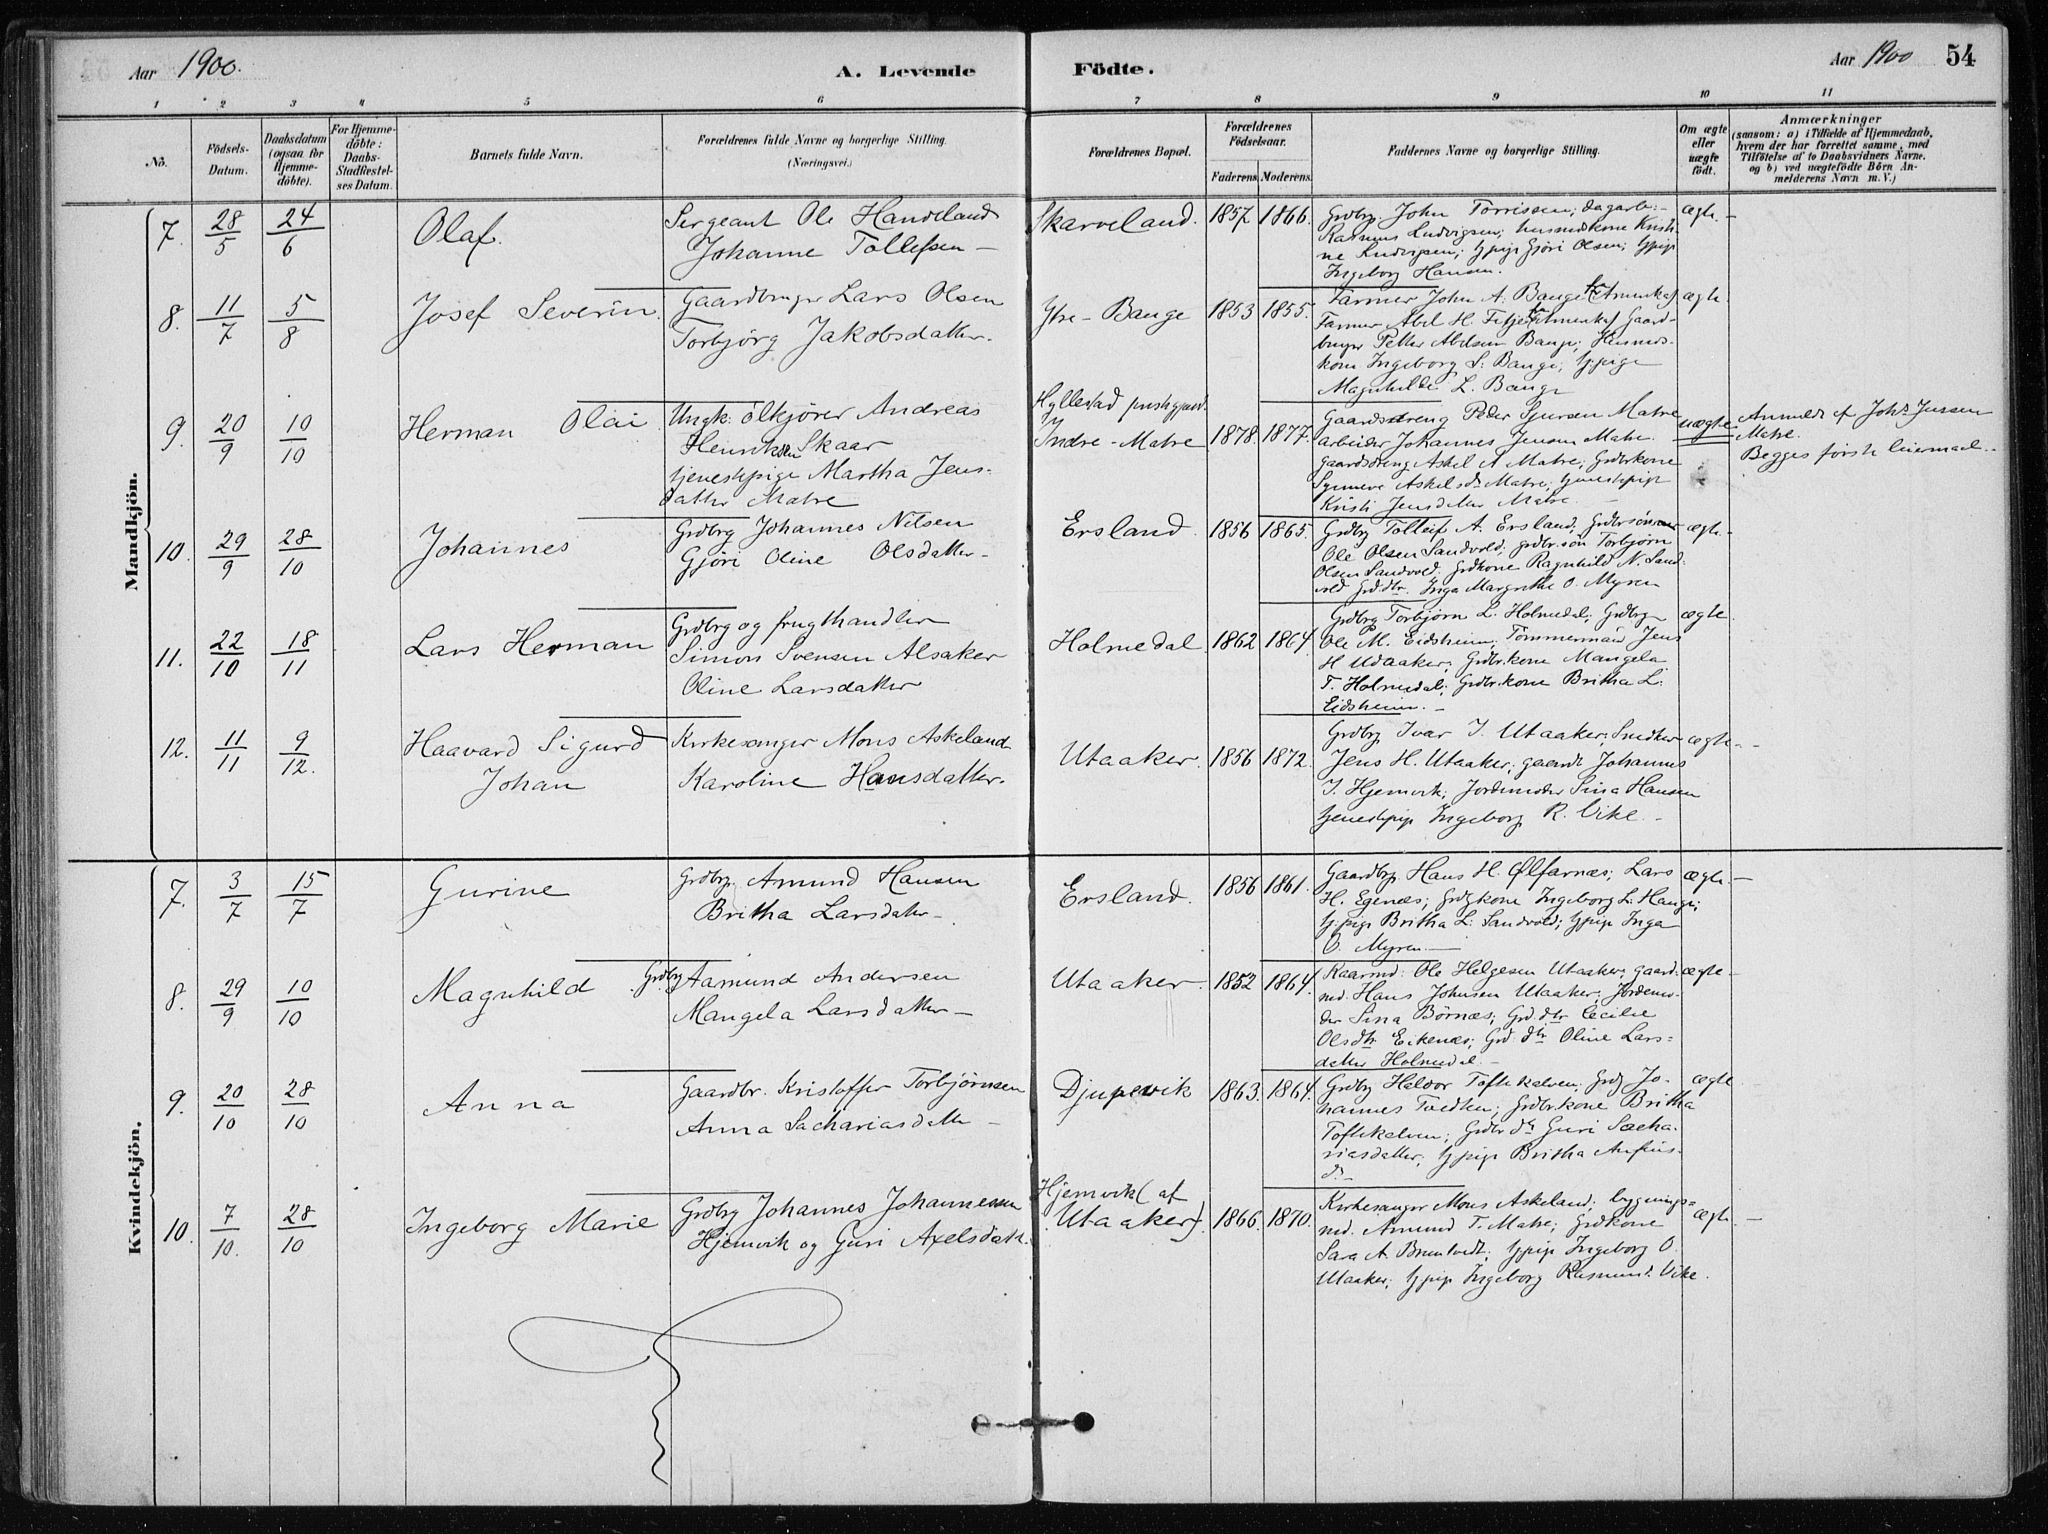 Aar 1900.
A. Levende Födte.
Aar 1900
54
1 2 3 4 5 6 7 8 9 10 11
No.
Födsels-
Datum.
Daabsdatum
(ogsaa for
Hjemme-
döbte).
For Hjemme-
döbte:
Daabs-
Stadfæstel-
ses Datum.
Barnets fulde Navn.
Forældrenes fulde Navne og borgerlige Stilling.
(Næringsvei.)
Forældrenes Bopæl.
Forældrenes
Födselsaar.
Faderens. Moderens.
Faddernes Navne og borgerlige Stilling.
Om ægte
eller
uægte
födt.
Anmærkninger
(saasom: a) i Tilfælde af Hjemmedaab,
hvem der har forrettet samme, med
Tilföielse af to Daabsvidners Navne.
og b) ved uægtefödte Börn An-
melderens Navn m. V.)
Mandkjön.
7. 28/5 24/6 Olaf.
Sergeant Ole Handeland
Johanne Tollefsen —
Skarveland. 1857. 1866.
Grdbr. John Torrissen; dagarb:
Rasmus Ludvigsen; husmdskone Kristi-
ne Ludvigsen; tjpige Gjöri Olsen; tjpige
Ingeborg Hansen.
ægte. —
8. 11/7 5/8 Josef Severin.
Gaardbruger Lars Olsen
Torbjörg Jakobsdatter.
Ytre-Bauge 1853 1855.
Farmer John A. Bauge (fr Amerika)
Farmer Abel H. Fitje (fr Amerika) Gaard-
bruger Petter Abelsen Bauge; Husmds-
kone Ingeborg S. Bauge; tjpige
Magnhilde L. Bauge
ægte
9. 20/9 10/10 Herman Olai
Ungk: ölkjörer Andreas
Henriksen Skaar
tjenestepige Martha Jens-
datter Matre
Hyllestad prestgjæld.
Indre-Matre 1878. 1877.
Gaardsdreng Peder Sjursen Matre
arbeider Johannes Jensen Matre.
gaardsdreng Askel A Matre; Grdbrkone
Synneve Askelsdr Matre; tjenestepige
Kristi Jensdatter Matre. —
uægte
Anmeldt af Johs Jensen
Matre.
Begges første leiermaal.
10. 29/9 28/10 Johannes
Grdbrg Johannes Nilsen
Gjöri Oline Olsdatter —
Ersland 1856 1865.
Grdbrg Tolleif A. Ersland; Grdbrsönner
Ole Olsen Sandvold; grdbr.sön Torbjörn
Olsen Sandvold. Grdkone Ragnhild N. Sand-
vold Grd.dtr. Inga Margrethe O. Myren
ægte. —
11. 22/10 18/11 Lars Herman
Grdbrg og frugthandler
Simon Svensen Alsaker
Oline Larsdatter
Holmedal 1862 1864.
Grdbrg Torbjörn L. Holmedal; Grdbrg
Ole M. Eidsheim; Tömmermand Jens
H Udaaker; Grdbr.kone Mangela
T. Holmedal; Grdbr.kone Britha L.
Eidsheim. —
ægte.
12. 11/11 9/12. Haavard Sigurd
Johan
Kirkesanger Mons Askeland
Karoline Hansdatter.
Utaaker. 1856 1872.
Grdbrg Ivar I. Utaaker; Snedker
Jens H. Utaaker; gaardt Johannes
I. Hjemvik; Jordemoder Sina Hansen
tjenestepige Ingeborg R. Vike. —
ægte. —
Kvindekjön.
7. 3/7 15/7 Gurine
Grdbrg. Amund Hansen
Britha Larsdatter —
Ersland. 1856 1861.
Gaardbrg Hans H. Ölfarnæs; Lars
H. Egenæs; Grdbrkone Ingeborg L. Hauge;
tjpige Britha L. Sandvold; tjpige Inga
O. Myren —
ægte. —
8. 29/9 10/10 Magnhild
Grdbrg Aamund Andersen
Mangela Larsdatter —
Utaaker. 1852 1864.
Kaarmd: Ole Helgesen Utaaker; gaard-
md. Hans Johnsen Utaaker; Jordemo-
der Sina Börnæs; Grd.dtr Cecilie
Olsdtr Eikenæs; Grd.dtr Oline Lars-
datter Holmedal. —
ægte —
9. 20/10 28/10 Anna
Gaardbr. Kristoffer Torbjörnsen
Anna Sachariasdatter —
Djupevik 1863. 1864.
Grdbrg Haldor Toftekalven; Grdbrg Jo-
hannes Tvedten; Grdbr.kone Britha
Toftekalven; Grdbr dr Guri Sacha-
riasdatter; tjpige Britha Anfins-
dr —
ægte
10. 7/10. 28/10 Ingeborg Marie
Grdbrg Johannes Johannessen
Hjemvik og Guri Axelsdatt.
Hjemvik (af
Utaaker). 1866. 1870.
Kirkesanger Mons Askeland; bygnings-
md. Amund T. Matre; Grdkone
Sara A. Bruntvedt; tjpige Ingeborg O.
Utaaker; tjpige Ingeborg Rasmusd. Vike.
ægte —